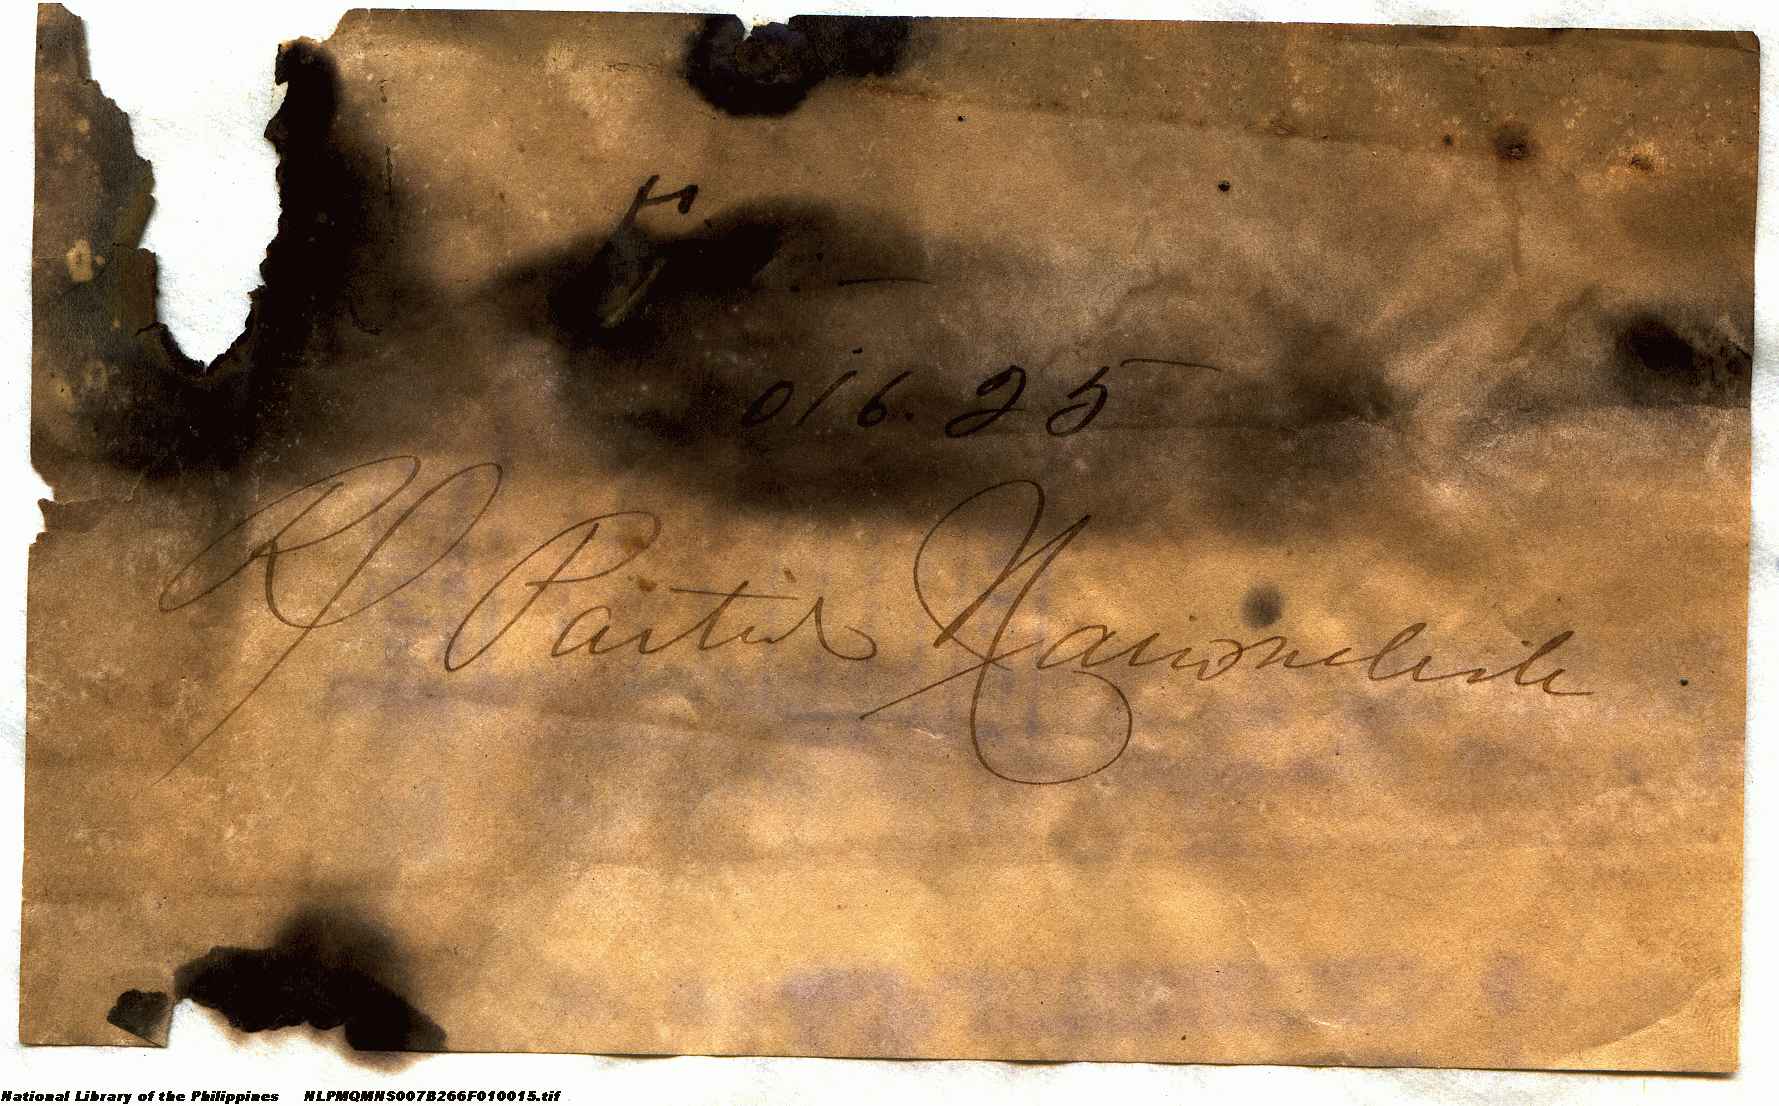 016.25
RP Partido Nacionalista
National Library of the Philippines NLPMQMNS007B266F010015.tif